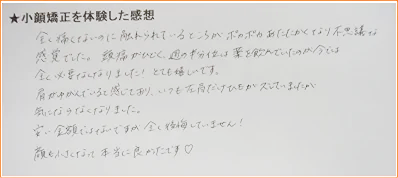 ★小顔矯正を体験した感想
全く痛くないのに触れられているところがポカポカあたたかくなり不思議な
感覚でした。頭痛がひどく、週の半分位は薬を飲んでいたのが今では
全く必要なくなりました！とても嬉しいです。
肩がゆがんでいると感じており、いつも左肩だけひもが欠していましたが
気にならなくなりました。
安い金額ではないですが全く後悔していません！
顔も小さくなって本当に良かったです♡